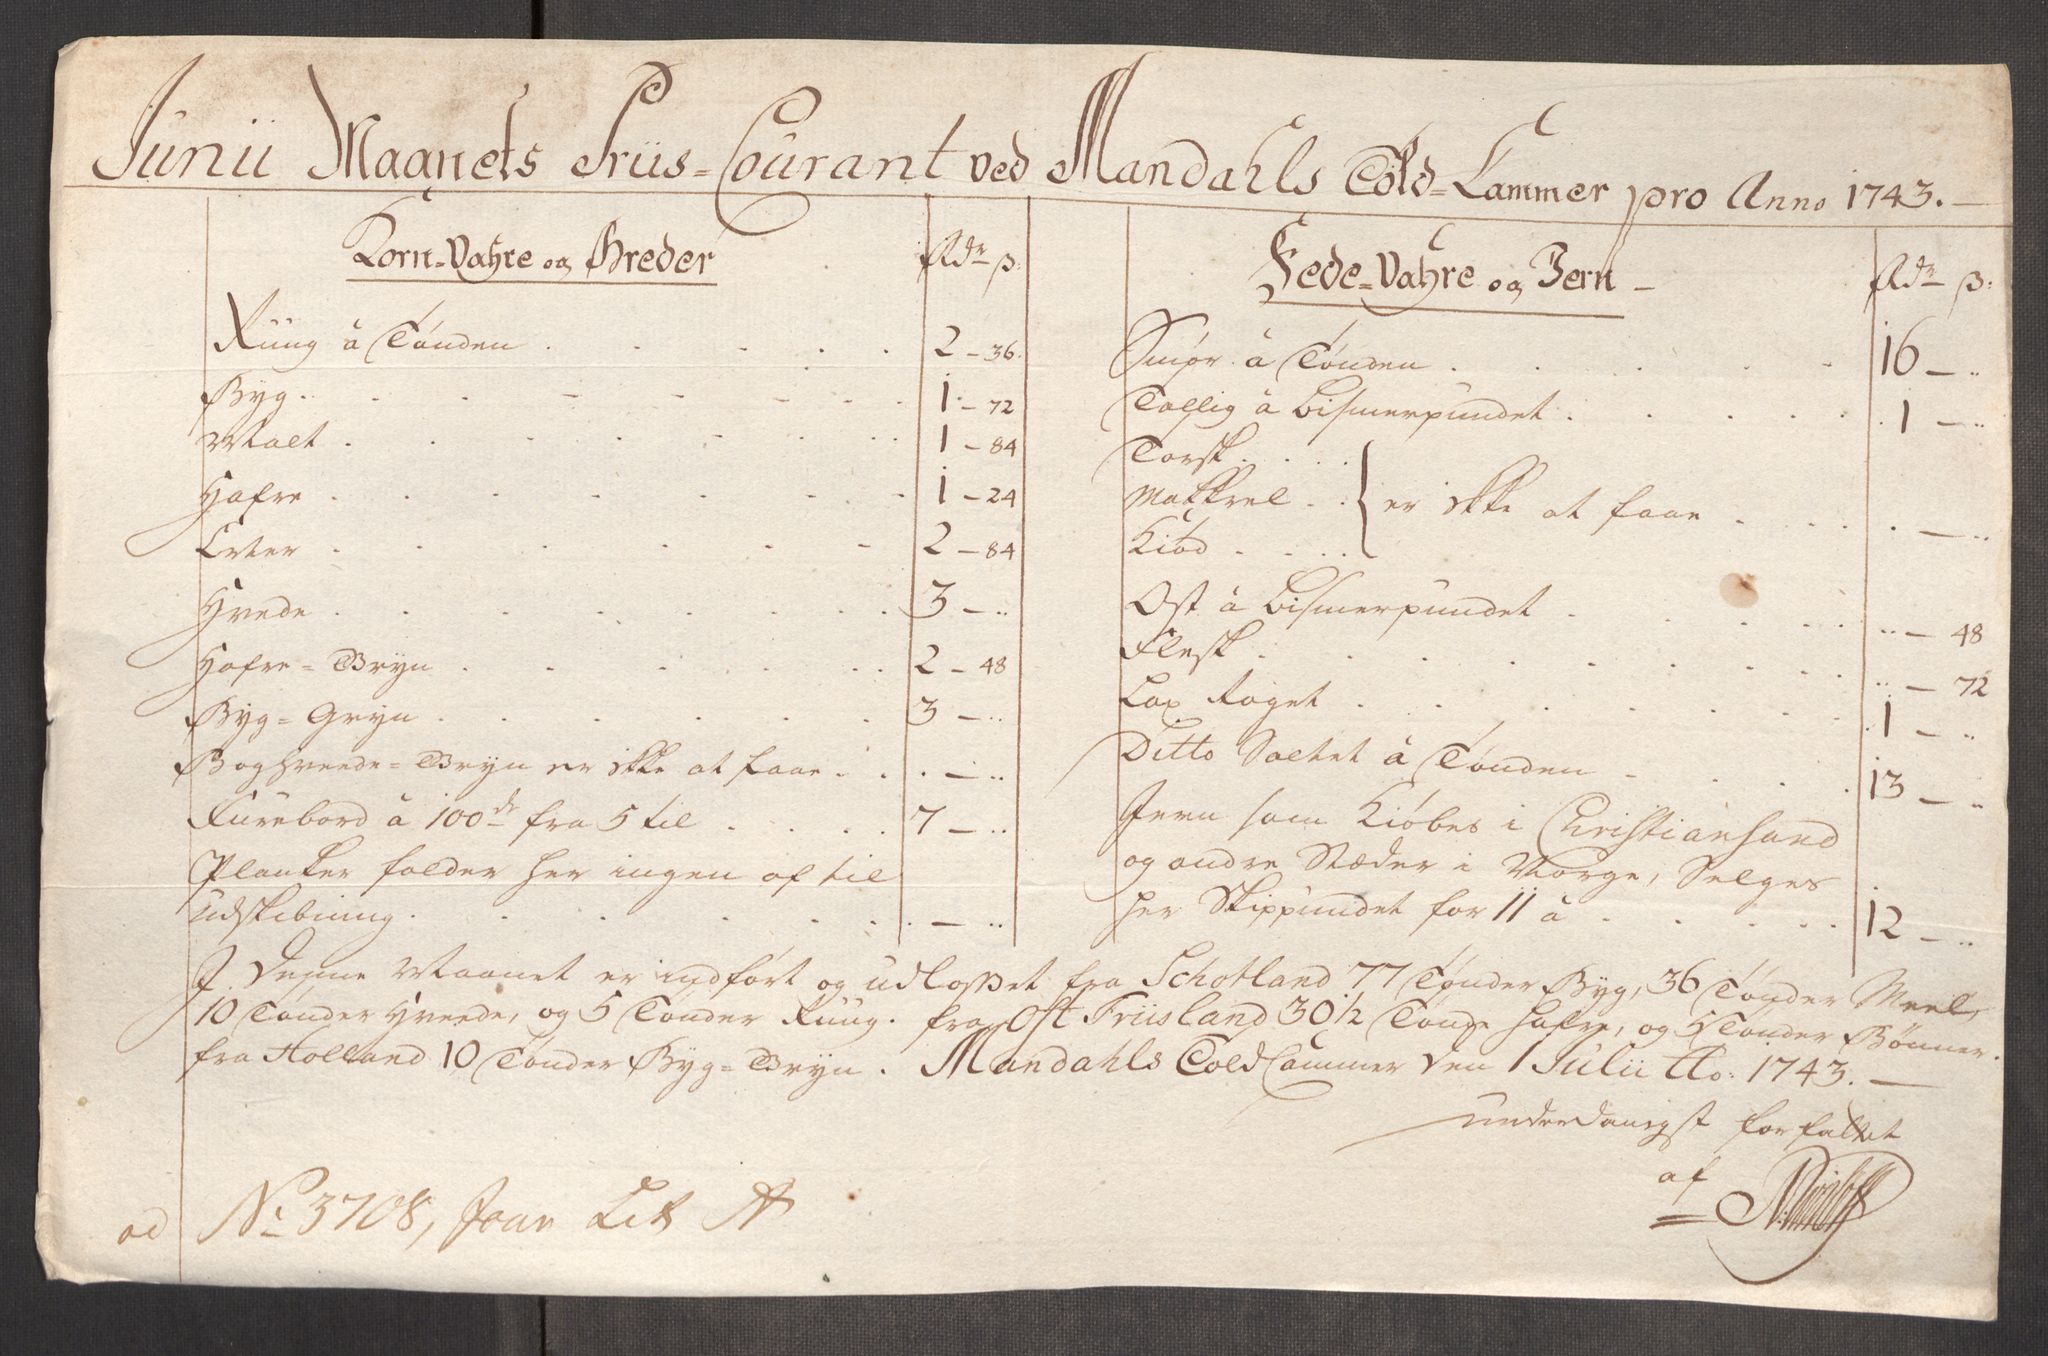 Junii Maanets Priis-Courant ved Mandahls Told-Cammer pro Anno 1743.
Korn-Vahre og Breder Rdr ß:
Rüng à Tønden 2 - 36.
Byg 1 - 72
Malt 1 - 84
Hafre 1 - 24
Erter 2 - 84
Hvede 3 - ..
Hafre-Gryn 2 - 48
Byg-Gryn 3 - ..
Boghveede-Gryn er ikke at faae . - ..
Furebord à 100de fra 5 til 7 - ..
Planker falder her ingen af til
Udskibning . - ..
Fede-Vahre og Jern - Rdr ß:
Smør à Tønden 16 - ..
Tallig à Bismerpundet 1 - ..
Torsk
Makkrel } er ikke at faae . - ..
Kiød
Ost à Bismerpundet .. - 48
Flesk .. - 72
Lax Røget 1 - ..
Ditto Saltet à Tønden 13 - ..
Jern som Kiøbes i Christiansand
og andre Stæder i Norge, Selges
her Skippundet for 11 à 12 - ..
J Denne Maanet er indført og udlosset fra Schotland 77 Tønder Byg, 36 Tønder Meel,
10 Tønder Hveede, og 5 Tønder Rüng. fra Ost Friisland 30 1/2 Tønde Hafre, og 4 Tønder Bønner.
fra Holland 10 Tønder Byg-Gryn. Mandahls Told Cammer den 1 Julii Ao. 1743.
underdanigst forfattet
af
ad No 3708, Litr A